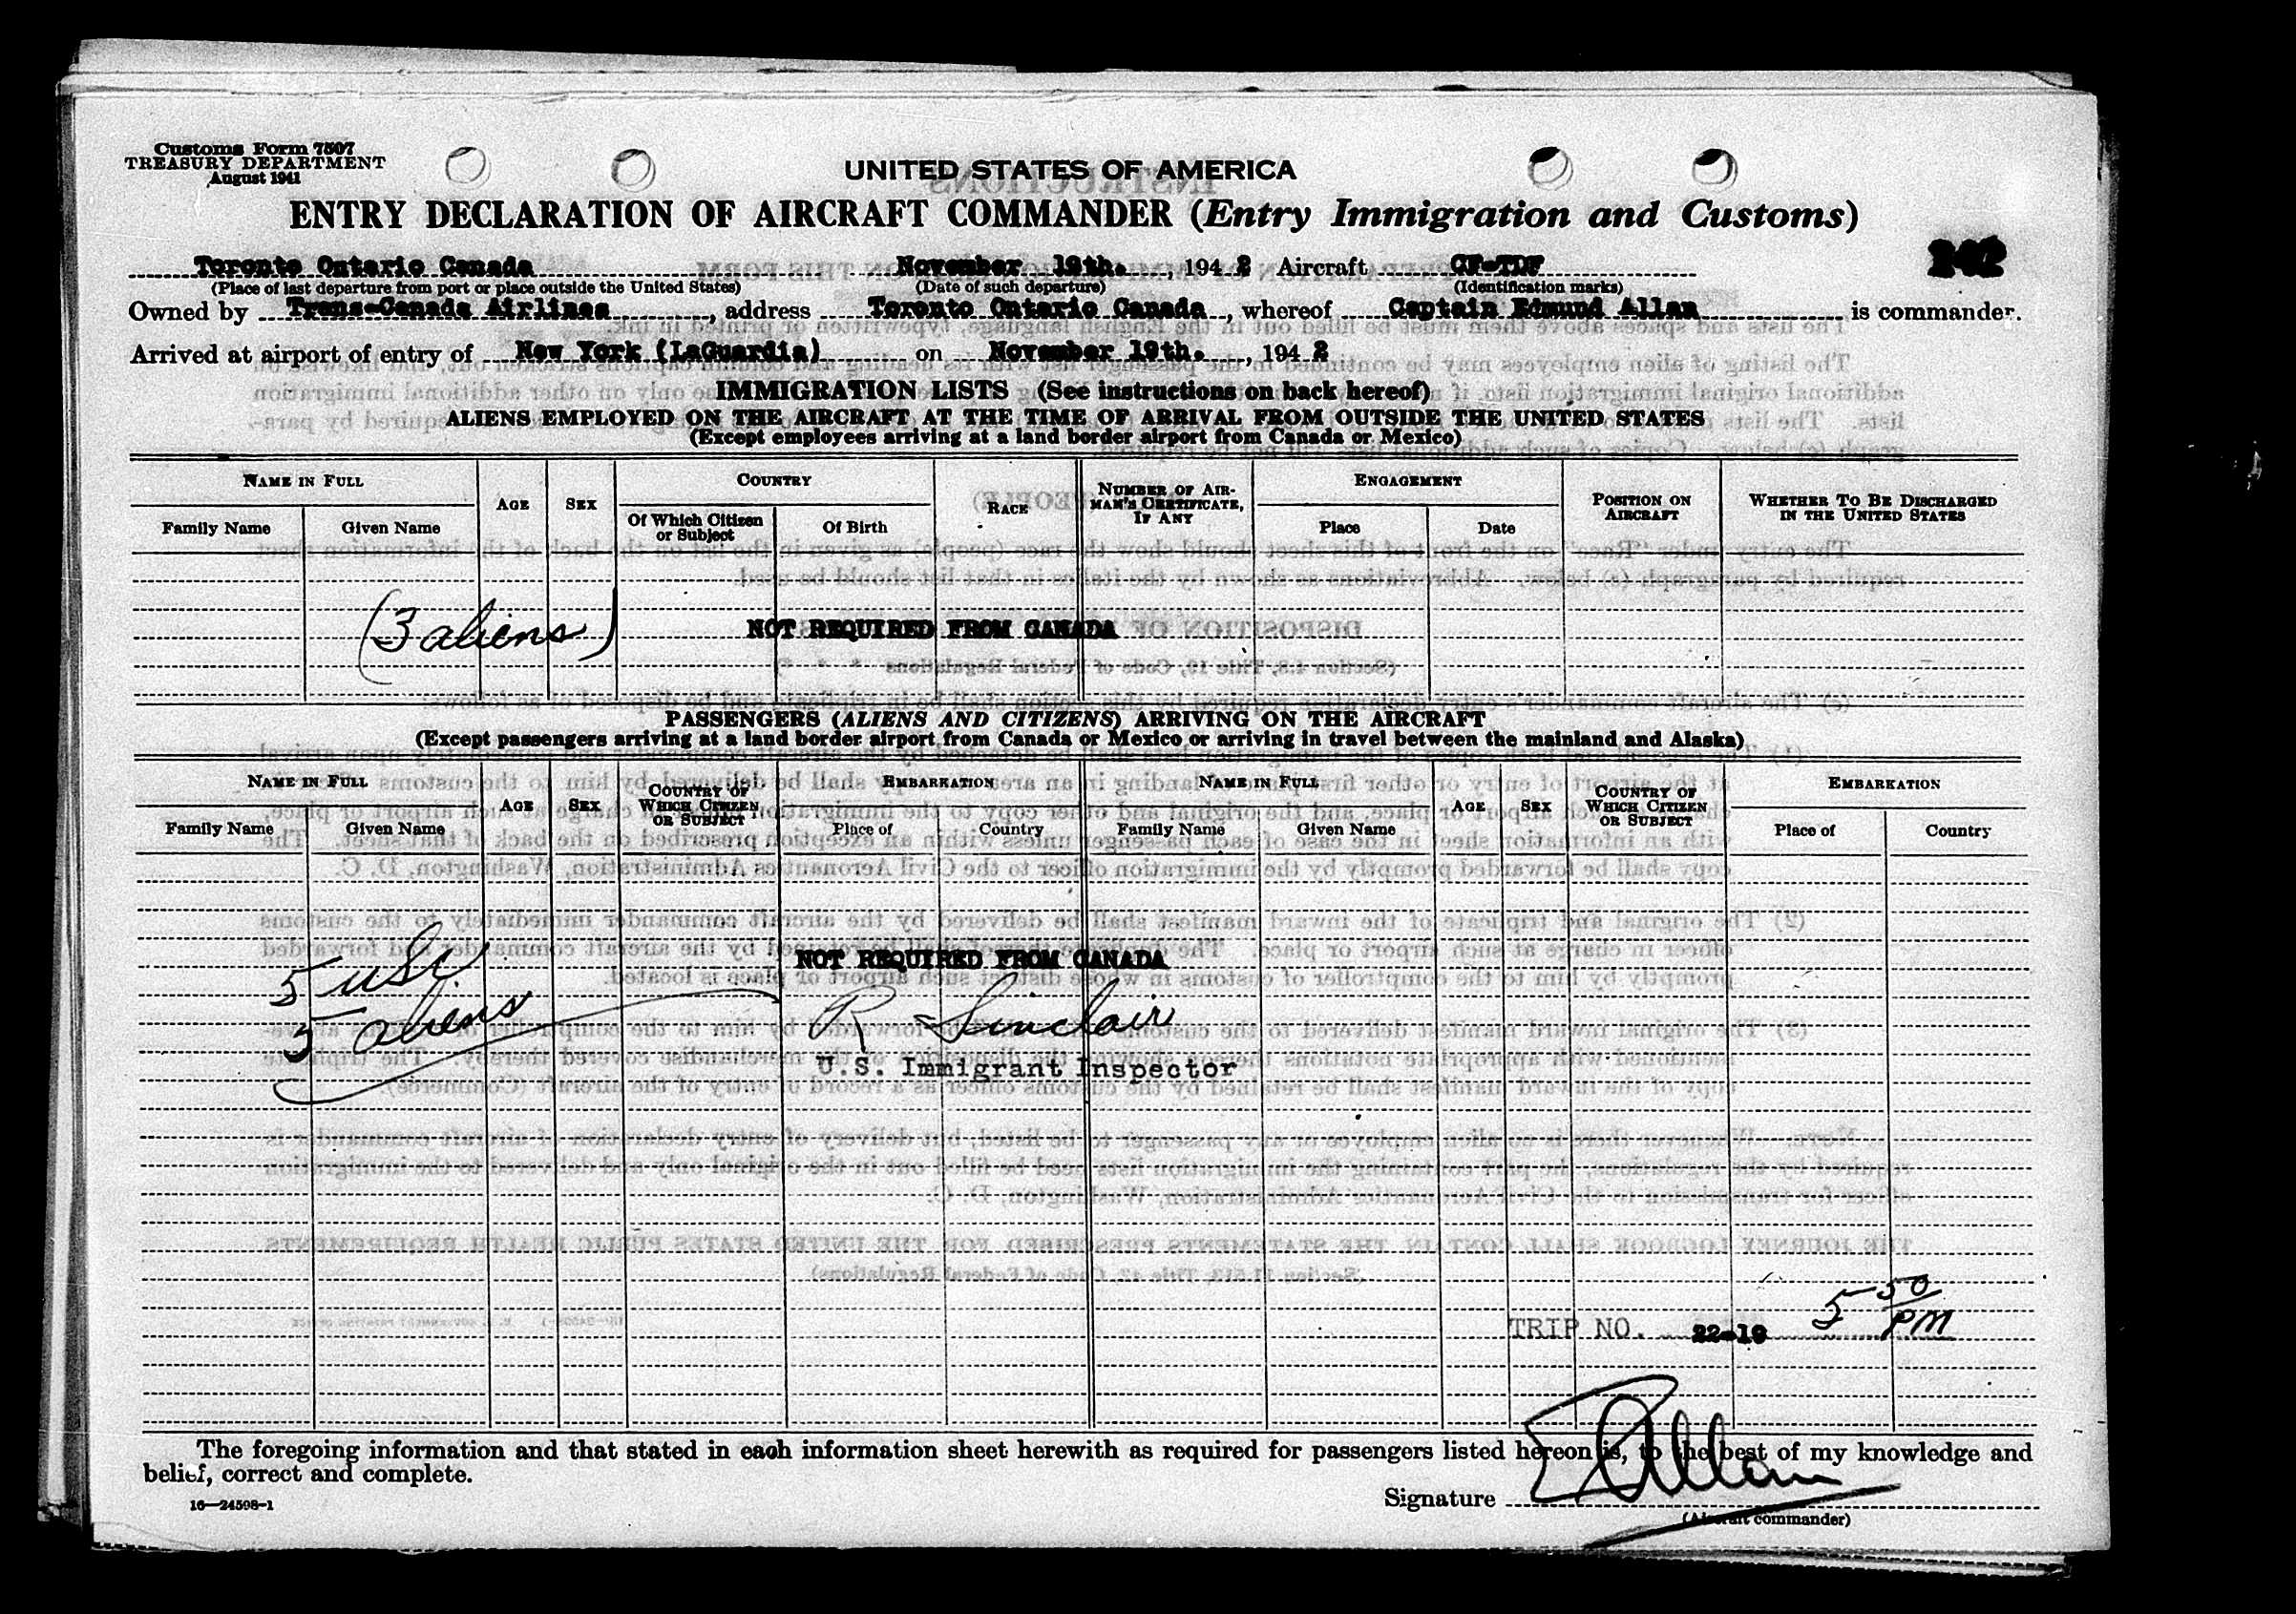 Customs Form 7507
TREASURY DEPARTMENT
August 1941
UNITED STATES OF AMERICA
ENTRY DECLARATION OF AIRCRAFT COMMANDER (Entry Immigration and Customs)
242
Toronto Ontario Canada November 19th., 1942 Aircraft CF-TDF
(Place of last departure from port or place outside the United States) (Date of such departure) (Identification marks)
Owned by Trans-Canada Airlines, address Toronto Ontario Canada, whereof Captain Edmund Allan is commander.
Arrived at airport of entry of New York (LaGuardia) on November 19th., 1942
IMMIGRATION LISTS (See instructions on back hereof)
ALIENS EMPLOYED ON THE AIRCRAFT AT THE TIME OF ARRIVAL FROM OUTSIDE THE UNITED STATES
(Except employees arriving at a land border airport from Canada or Mexico)
NAME IN FULL AGE SEX COUNTRY RACE NUMBER OF AIRMAN'S CERTIFICATE, IF ANY ENGAGEMENT POSITION ON AIRCRAFT WHETHER TO BE DISCHARGED IN THE UNITED STATES
Family Name Given Name Of Which Citizen or Subject Of Birth Place Date
(3 aliens) NOT REQUIRED FROM CANADA
PASSENGERS (ALIENS AND CITIZENS) ARRIVING ON THE AIRCRAFT
(Except passengers arriving at a land border airport from Canada or Mexico or arriving in travel between the mainland and Alaska)
NAME IN FULL AGE SEX COUNTRY OF WHICH CITIZEN OR SUBJECT EMBARKATION NAME IN FULL AGE SEX COUNTRY OF WHICH CITIZEN OR SUBJECT EMBARKATION
Family Name Given Name Place of Country Family Name Given Name Place of Country
5 USC NOT REQUIRED FROM CANADA
5 aliens R Sinclair
U.S. Immigrant Inspector
TRIP NO. 22-19 5 50 PM
The foregoing information and that stated in each information sheet herewith as required for passengers listed hereon is, to the best of my knowledge and
belief, correct and complete.
16—24598-1
Signature E Allan
(Aircraft commander)